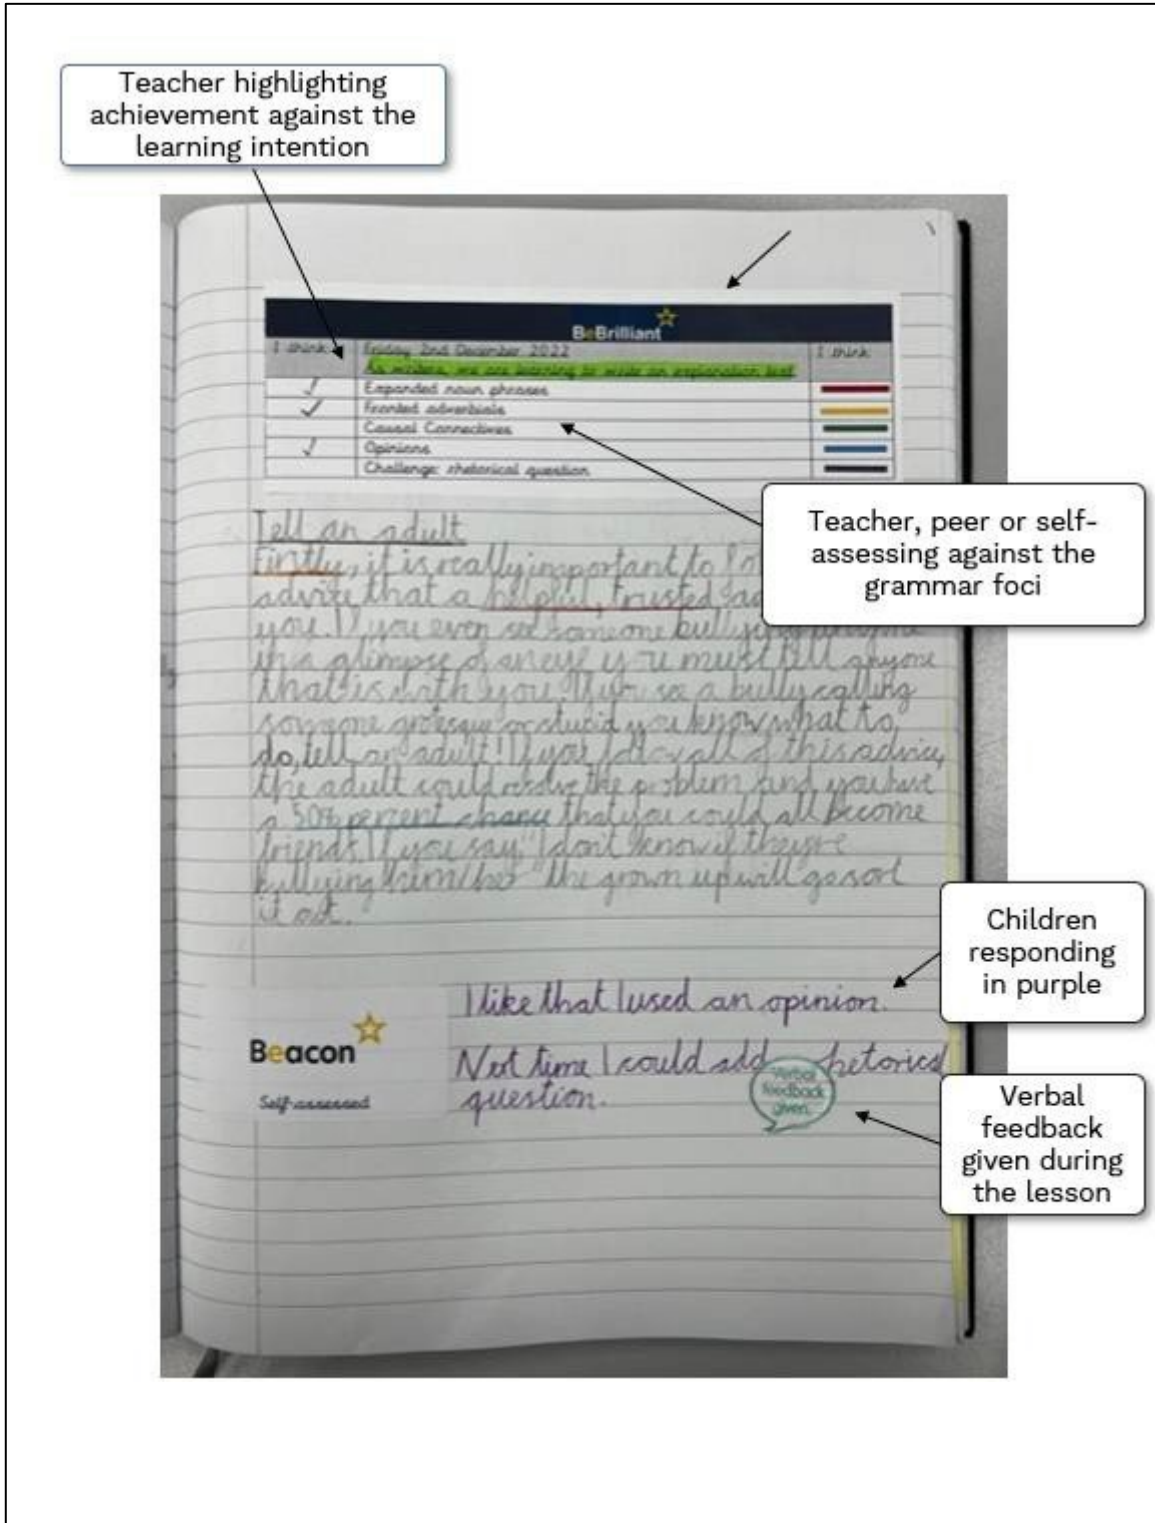 Teacher highlighting
achievement against the
learning intention
BeBrilliant
I think
Friday 2nd December 2022
I think
As writers, we are learning to write an explanation text
Expanded noun phrases
Fronted adverbials
Causal Connectives
Opinions
Challenge: rhetorical question
Teacher, peer or self-
assessing against the
grammar foci
Tell an adult
Firstly, it is really important to
advice that a helpful, trusted
you. If you even see someone bullying
in a glimpse of an eye you must tell anyone
that is with you. If you see a bully calling
someone grotesque or stupid you know what to
do, tell an adult! If you follow all of this advice,
the adult could resolve the problem and you have
a 50% percent chance that you could all become
friends. If you say, "I don't know if they're
bullying him/her" the grown up will go sort
it out.
Children
responding
in purple
I like that I used an opinion.
Beacon
Self-assessed
Next time I could add rhetorical
question.
Verbal
feedback
given
Verbal
feedback
given during
the lesson